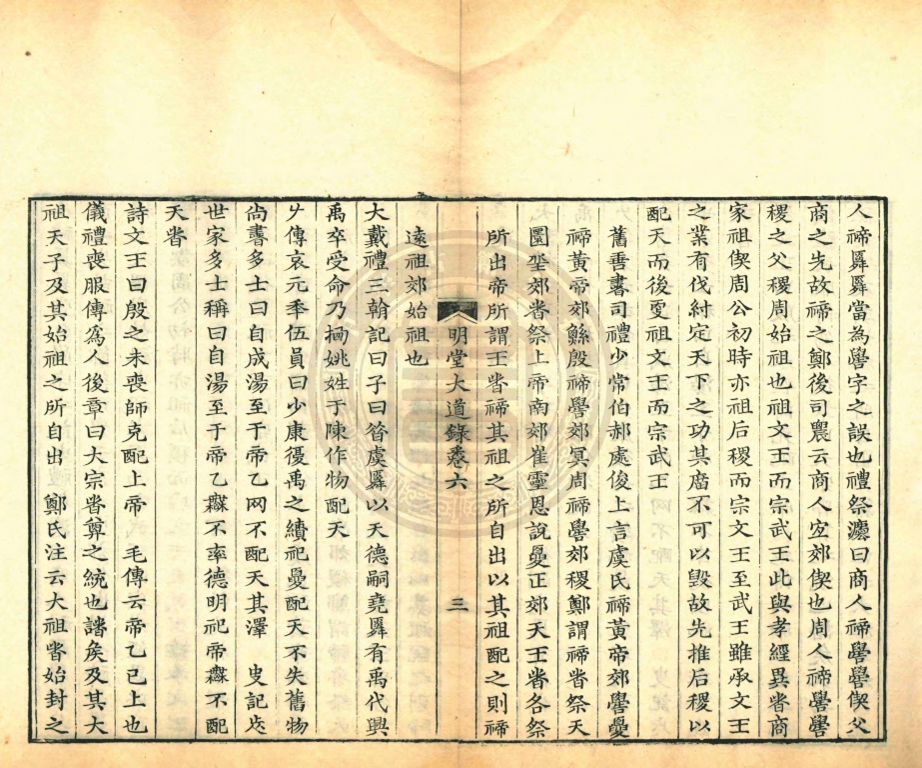 人禘𦤀𦤀當為嚳字之誤也禮祭灋曰商人禘嚳嚳偰父
商之先故禘之鄭後司農云商人宐郊偰也周人禘嚳嚳
稷之父稷周始祖也祖文王而宗武王此與孝經異者商
家祖偰周公初時亦祖后稷而宗文王至武王雖承文王
之業有伐紂定天下之功其廣不可以毀故先推后稷以
配天而後更祖文王而宗武王
舊唐書司禮少常伯郝處俊上言虞氏禘黃帝郊嚳夏
禘黃帝郊鯀殷禘嚳郊冥周禘嚳郊稷鄭謂禘者祭天
圜丘郊者祭上帝南郊崔靈恩說夏正郊天王者各祭
所出帝所謂王者禘其祖之所自出以其祖配之則禘
明堂大道錄卷六
三
遠祖郊始祖也
大戴禮三朝記曰子曰昔虞𦤀以天德嗣堯𦤀有禹代興
禹卒受命乃搹姚姓于陳作物配天
𠂇傳哀元季伍員曰少康復禹之績祀夏配天不失舊物
尙書多士曰自成湯至于帝乙网不配天其澤　史記𠂇
世家多士稱曰自湯至于帝乙𣞤不率德明祀帝𣞤不配
天者
詩文王曰殷之未喪師克配上帝　毛傳云帝乙已上也
儀禮喪服傳爲人後章曰大宗者尊之統也諸矦及其大
祖天子及其始祖之所自出　鄭氏注云大祖者始封之